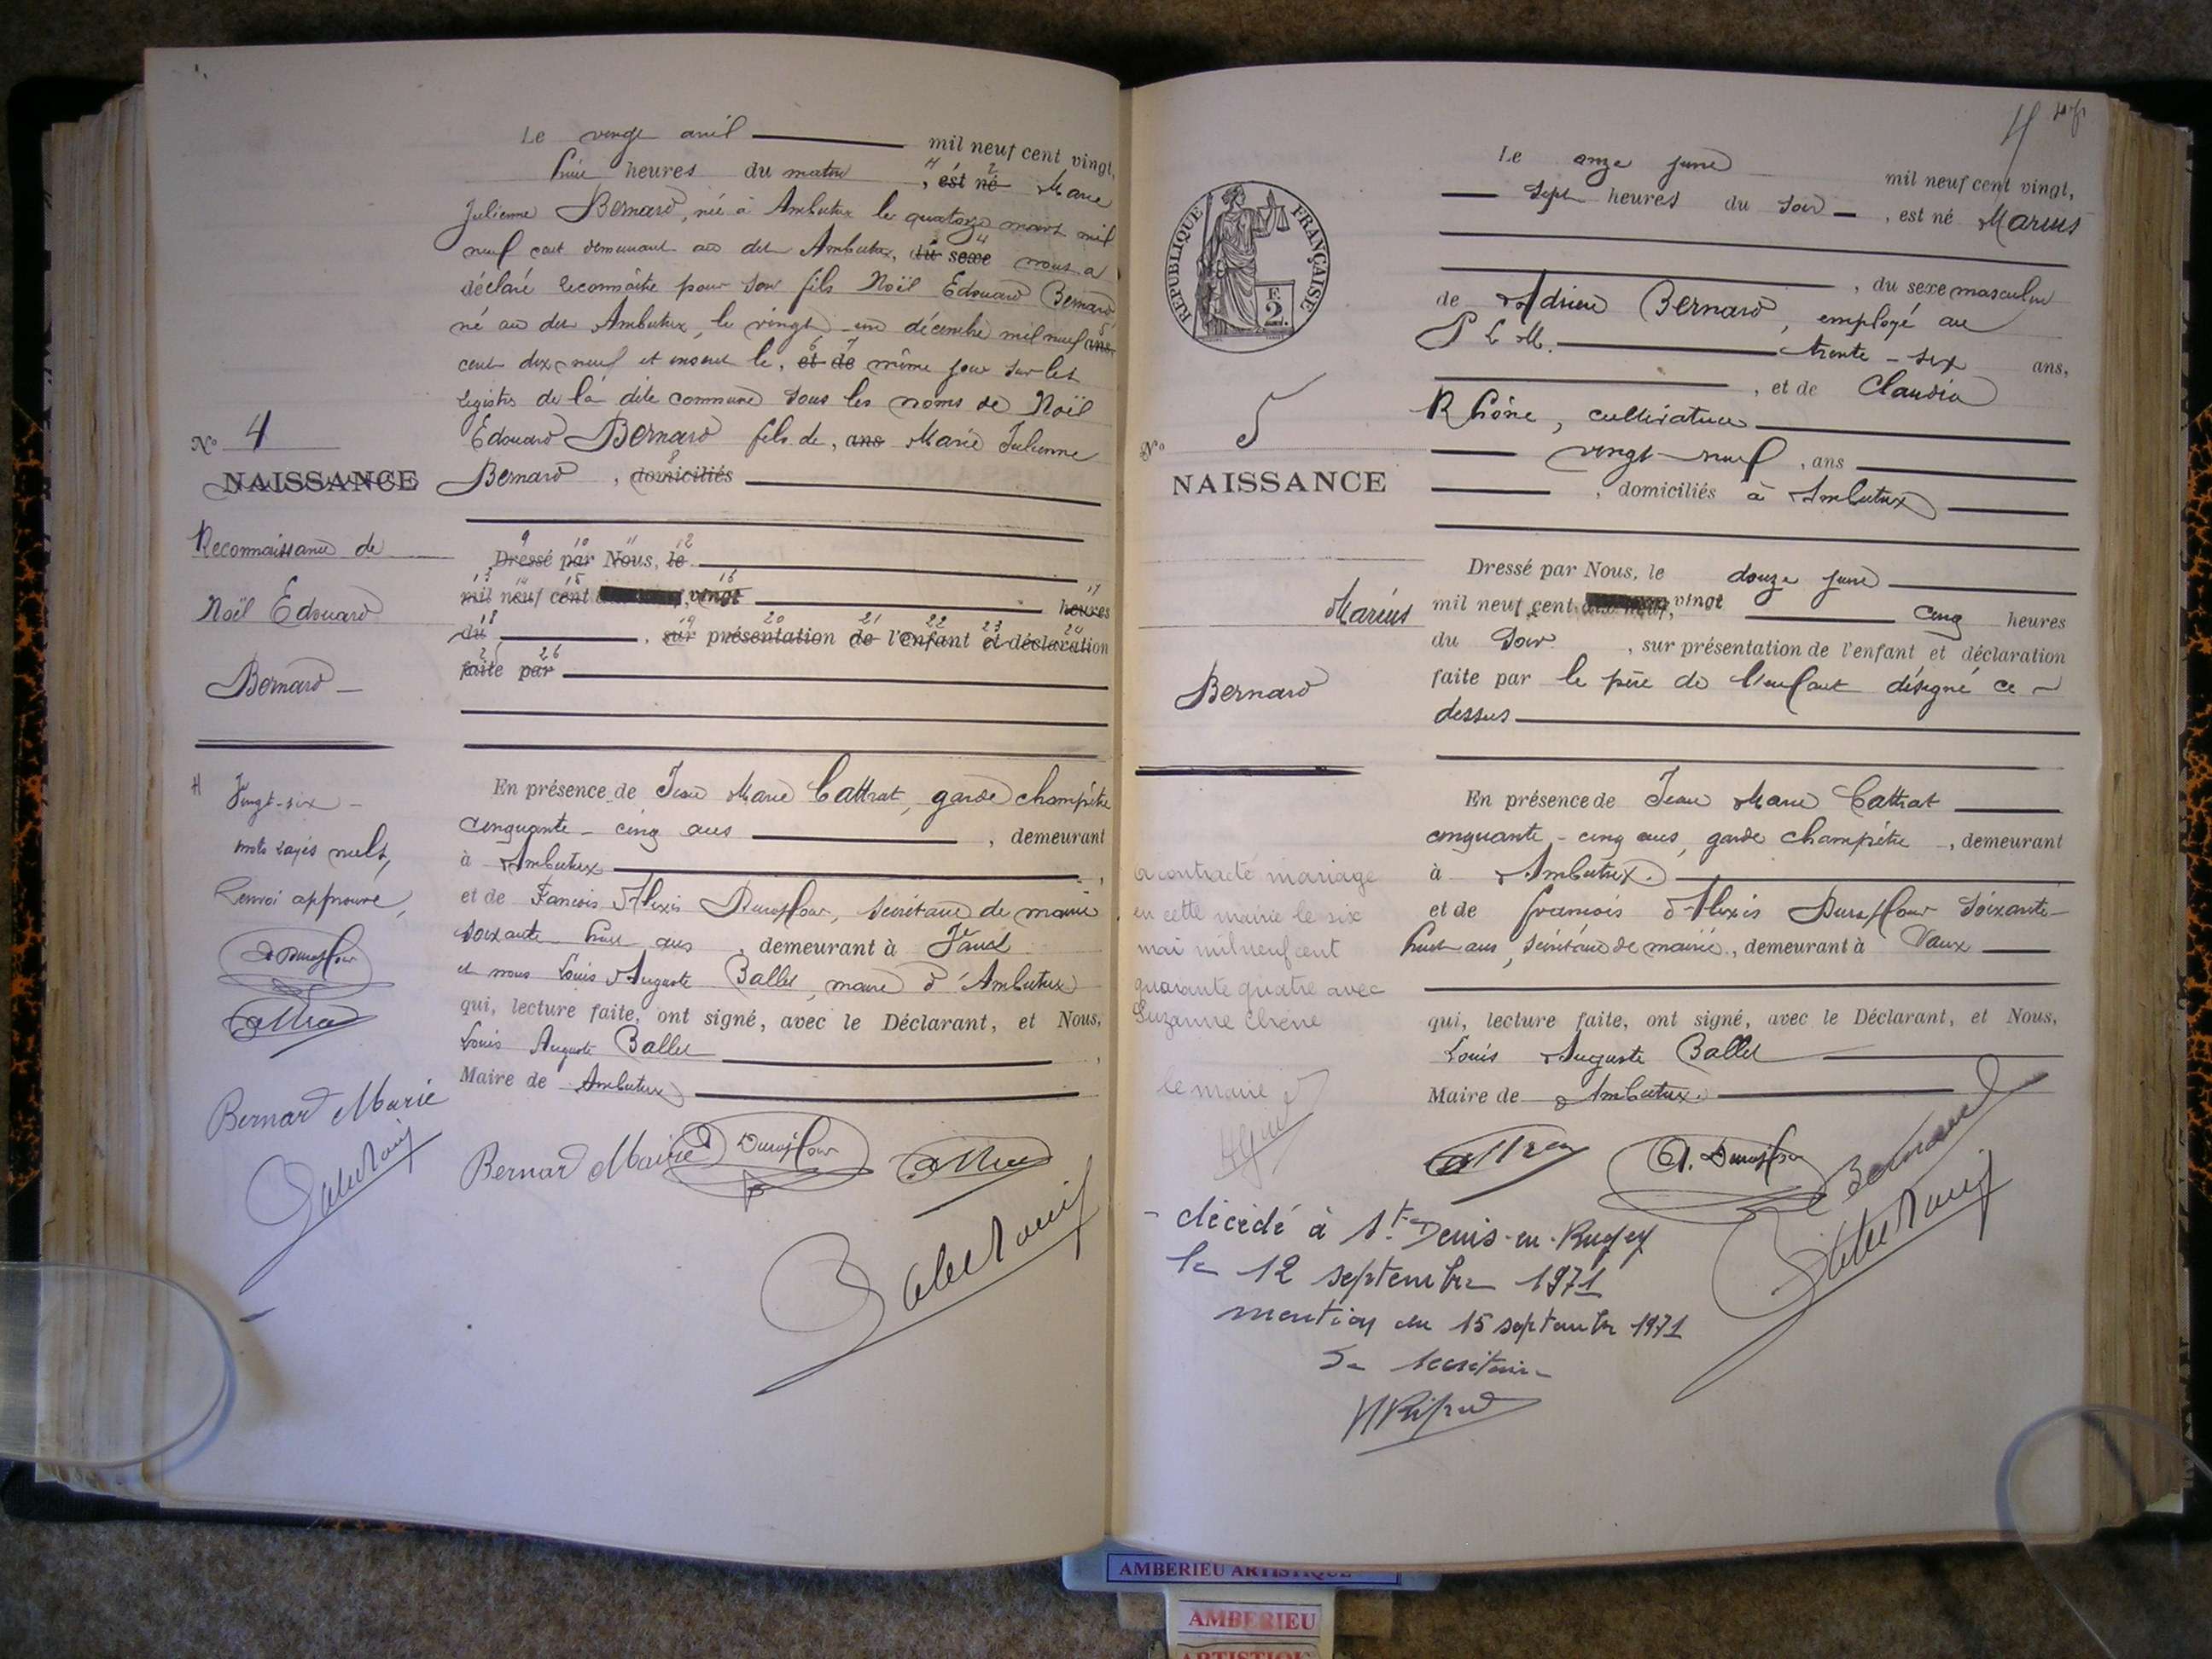 Le vingt avril mil neuf cent vingt,
huit heures du matin, est né Marie
Julienne Bernard, née à Ambutrix le quatorze mars mil
neuf cent demeurant au dit Ambutrix, du sexe nous a
déclaré reconnaître pour son fils Noël Edouard Bernard
né au dit Ambutrix, le vingt-un décembre mil neuf ans
cent dix neuf et inscrit le, et de même jour sur les
registres de la dite commune sous les noms de Noël
Edouard Bernard fils de, ans Marie Julienne
Bernard, domiciliés
N° 4
NAISSANCE
Reconnaissance de
Noël Edouard
Bernard
Dressé par Nous, le
mil neuf cent vingt heures
du, sur présentation de l'enfant et déclaration
faite par
Vingt-six
mots rayés nuls,
Renvoi approuvé,
A Duraffour
Cattrat
Bernard Marie
Ballet Louis
En présence de Jean Marie Cattrat, garde champêtre
cinquante-cinq ans, demeurant
à Ambutrix
et de Francois Alexis Duraffour, secrétaire de mairie
soixante huit ans, demeurant à Vaux
et nous Louis Auguste Ballet, maire d'Ambutrix
qui, lecture faite, ont signé, avec le Déclarant, et Nous,
Louis Auguste Ballet
Maire de Ambutrix
Bernard Marie Duraffour Cattrat
Ballet Louis
4
REPUBLIQUE FRANÇAISE
2 F.
Le onze juin mil neuf cent vingt,
sept heures du soir, est né Marius
, du sexe masculin
de Adrien Bernard, employé au
P L M. trente-six ans,
, et de Claudia
Rhône, cultivatrice
vingt-neuf, ans
, domiciliés à Ambutrix
N° 5
NAISSANCE
Marius
Bernard
Dressé par Nous, le douze juin
mil neuf cent vingt cinq heures
du soir, sur présentation de l'enfant et déclaration
faite par le père de l'enfant désigné ci-
dessus
En présence de Jean Marie Cattrat
cinquante-cinq ans, garde champêtre, demeurant
à Ambutrix.
et de francois Alexis Duraffour soixante-
huit ans, secrétaire de mairie, demeurant à Vaux
qui, lecture faite, ont signé, avec le Déclarant, et Nous,
Louis Auguste Ballet
Maire de Ambutrix.
a contracté mariage
en cette mairie le six
mai mil neuf cent
quarante quatre avec
Suzanne Chêne
le maire
Cattrat A. Duraffour Bernard
Ballet Louis
- décédé à St-Denis-en-Bugey
le 12 septembre 1971
mention du 15 septembre 1971
Le secrétaire
AMBERIEU ARTISTIQUE
AMBERIEU
ARTISTIQUE